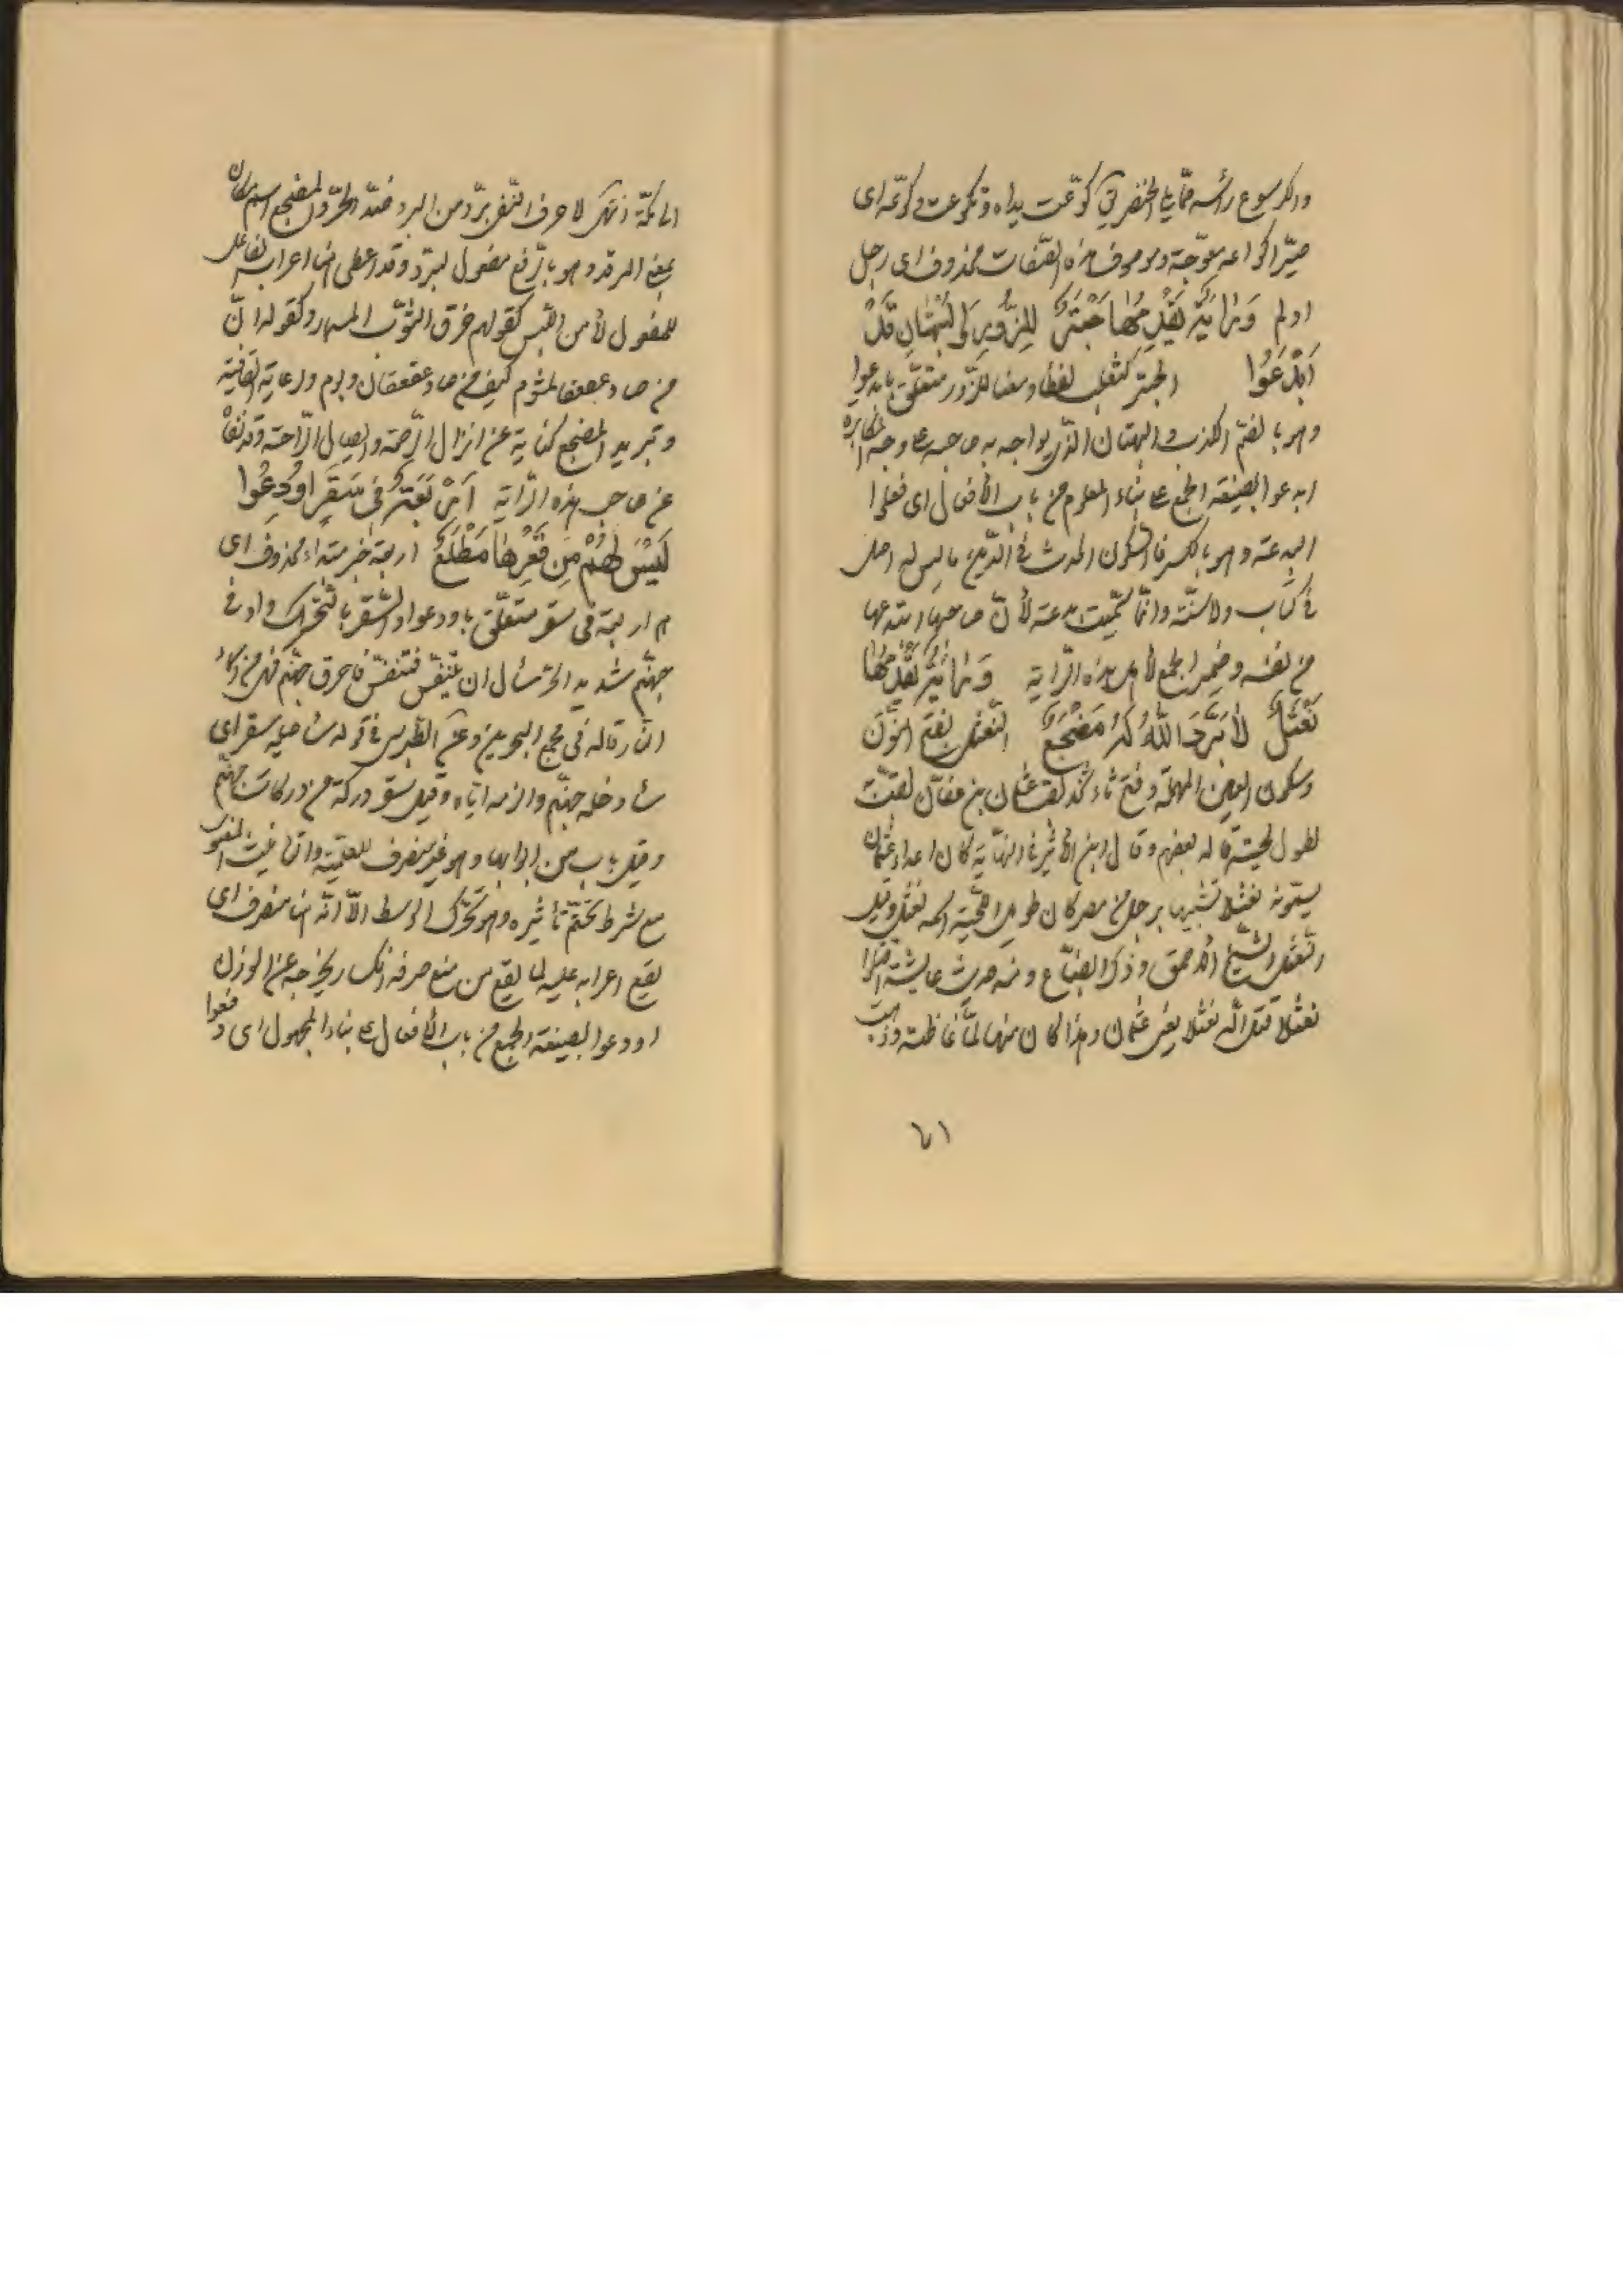 والكرسوع رأسه ممّا يلي الخنصر يق كوّعت يداه وتكوعت وكوّعه اى
صيّر اكواعه معوّجة وموصوف هذه الصّفات محذوف اى رجل
اولم وَرٰايَةٌ يَقْدِمُهٰا حَبْتَرٌ لِلزُّورِ وَالْبُهْتٰانِ قَدْ
اَبْدَعُوا الحبتر كثعلب لفظا ومعنا للزّور متعلّق بابدعوا
وهو بالضمّ الكذب والبهتان الذّى يواجه به صاحبه على وجه المكابره
ابدعوا بصيغة الجمع على بناء المعلوم من باب الأفعال اى فعلوا
البدعة وهو بالكسر فالسّكون الحدث فى الدّين ما ليس له اصل
فى كتاب ولا سنّة وانّما سمّيت بدعة لأنّ صاحبها ابتدعها
من نفسه وضمير الجمع لأهل هذه الرّاية وَرٰايَةٌ يَقْدِمُهٰا
نَعْثَلٌ لاٰ بَرَّدَ اللّٰهُ لَهُ مَضْجَعٌ النّعثل بفتح النّون
وسكون العين المهملة وفتح ثاء مثلثه لقب عثمان بن عفّان لقبت
لطول لحيته قاله بعضهم وقال ابن الأثير فى النّهاية كان اعداء عثمان
يسمّونه نعثلا تشبيها برجل من مصر كان طويل اللّحية اسمه نعثل وقيل
النّعثل الشّيخ الأحمق وذكر الضباع ومنه حديث عايشة اقتلوا
نعثلا قتل اللّه نعثلا يعنى عثمان وهذا كان منها لمّا غاظته وذهبت
٦١
الى مكّة انتهى لا حرف النّفى برّد من البرد ضدّ الحرّ والمضجع اسم مكان
بمعنى المرقد وهو بالرّفع مفعول لبرّد وقد اعطى هنا اعراب الفاعل
للمفعول لأمن اللّبس كقولهم خرق الثّوب المسمار وكقوله انّ
من صاد عقعقا لمشوم كيف من صاد عقعقان وبوم ورعاية القافية
وتبريد المضجع كناية عن انزال الرّحمة وايصال الرّاحة وقد نفاه
عن صاحب هذه الرّاية اَرْبَعَةٌ فى سَقَرٍ اُودِعُوا
لَيْسَ لَهُمْ مِنْ قَعْرِهٰا مَطْلَعٌ اربعة خبر مبتداء محذوف اى
هم اربعة فى سقر متعلّق باودعوا والسّقر بالتّحرّك واد فى
جهنّم شديد الحرّ سأل ان يتنفّس فتنفّس فاحرق جهنّم فهى من اسماء
النّار قاله فى مجمع البحرين وعن الطّبرسى فى قوله سأصليه سقر اى
سأدخله جهنّم والزمه ايّاه وقيل سقر دركة من دركات جهنّم
وقيل باب من ابوابها وهو غير منصرف للعلميّة والتأنيث المعنوى
مع شرط تحتّم تأثيره وهو تحرّك الوسط الاّ انّه هنا منصرف اى
يقع اعرابه عليه لما يقع من منع صرفه انكسار يخرجه عن الوزن
اودعوا بصيغة الجمع من باب الأفعال على بناء المجهول اى دفعوا